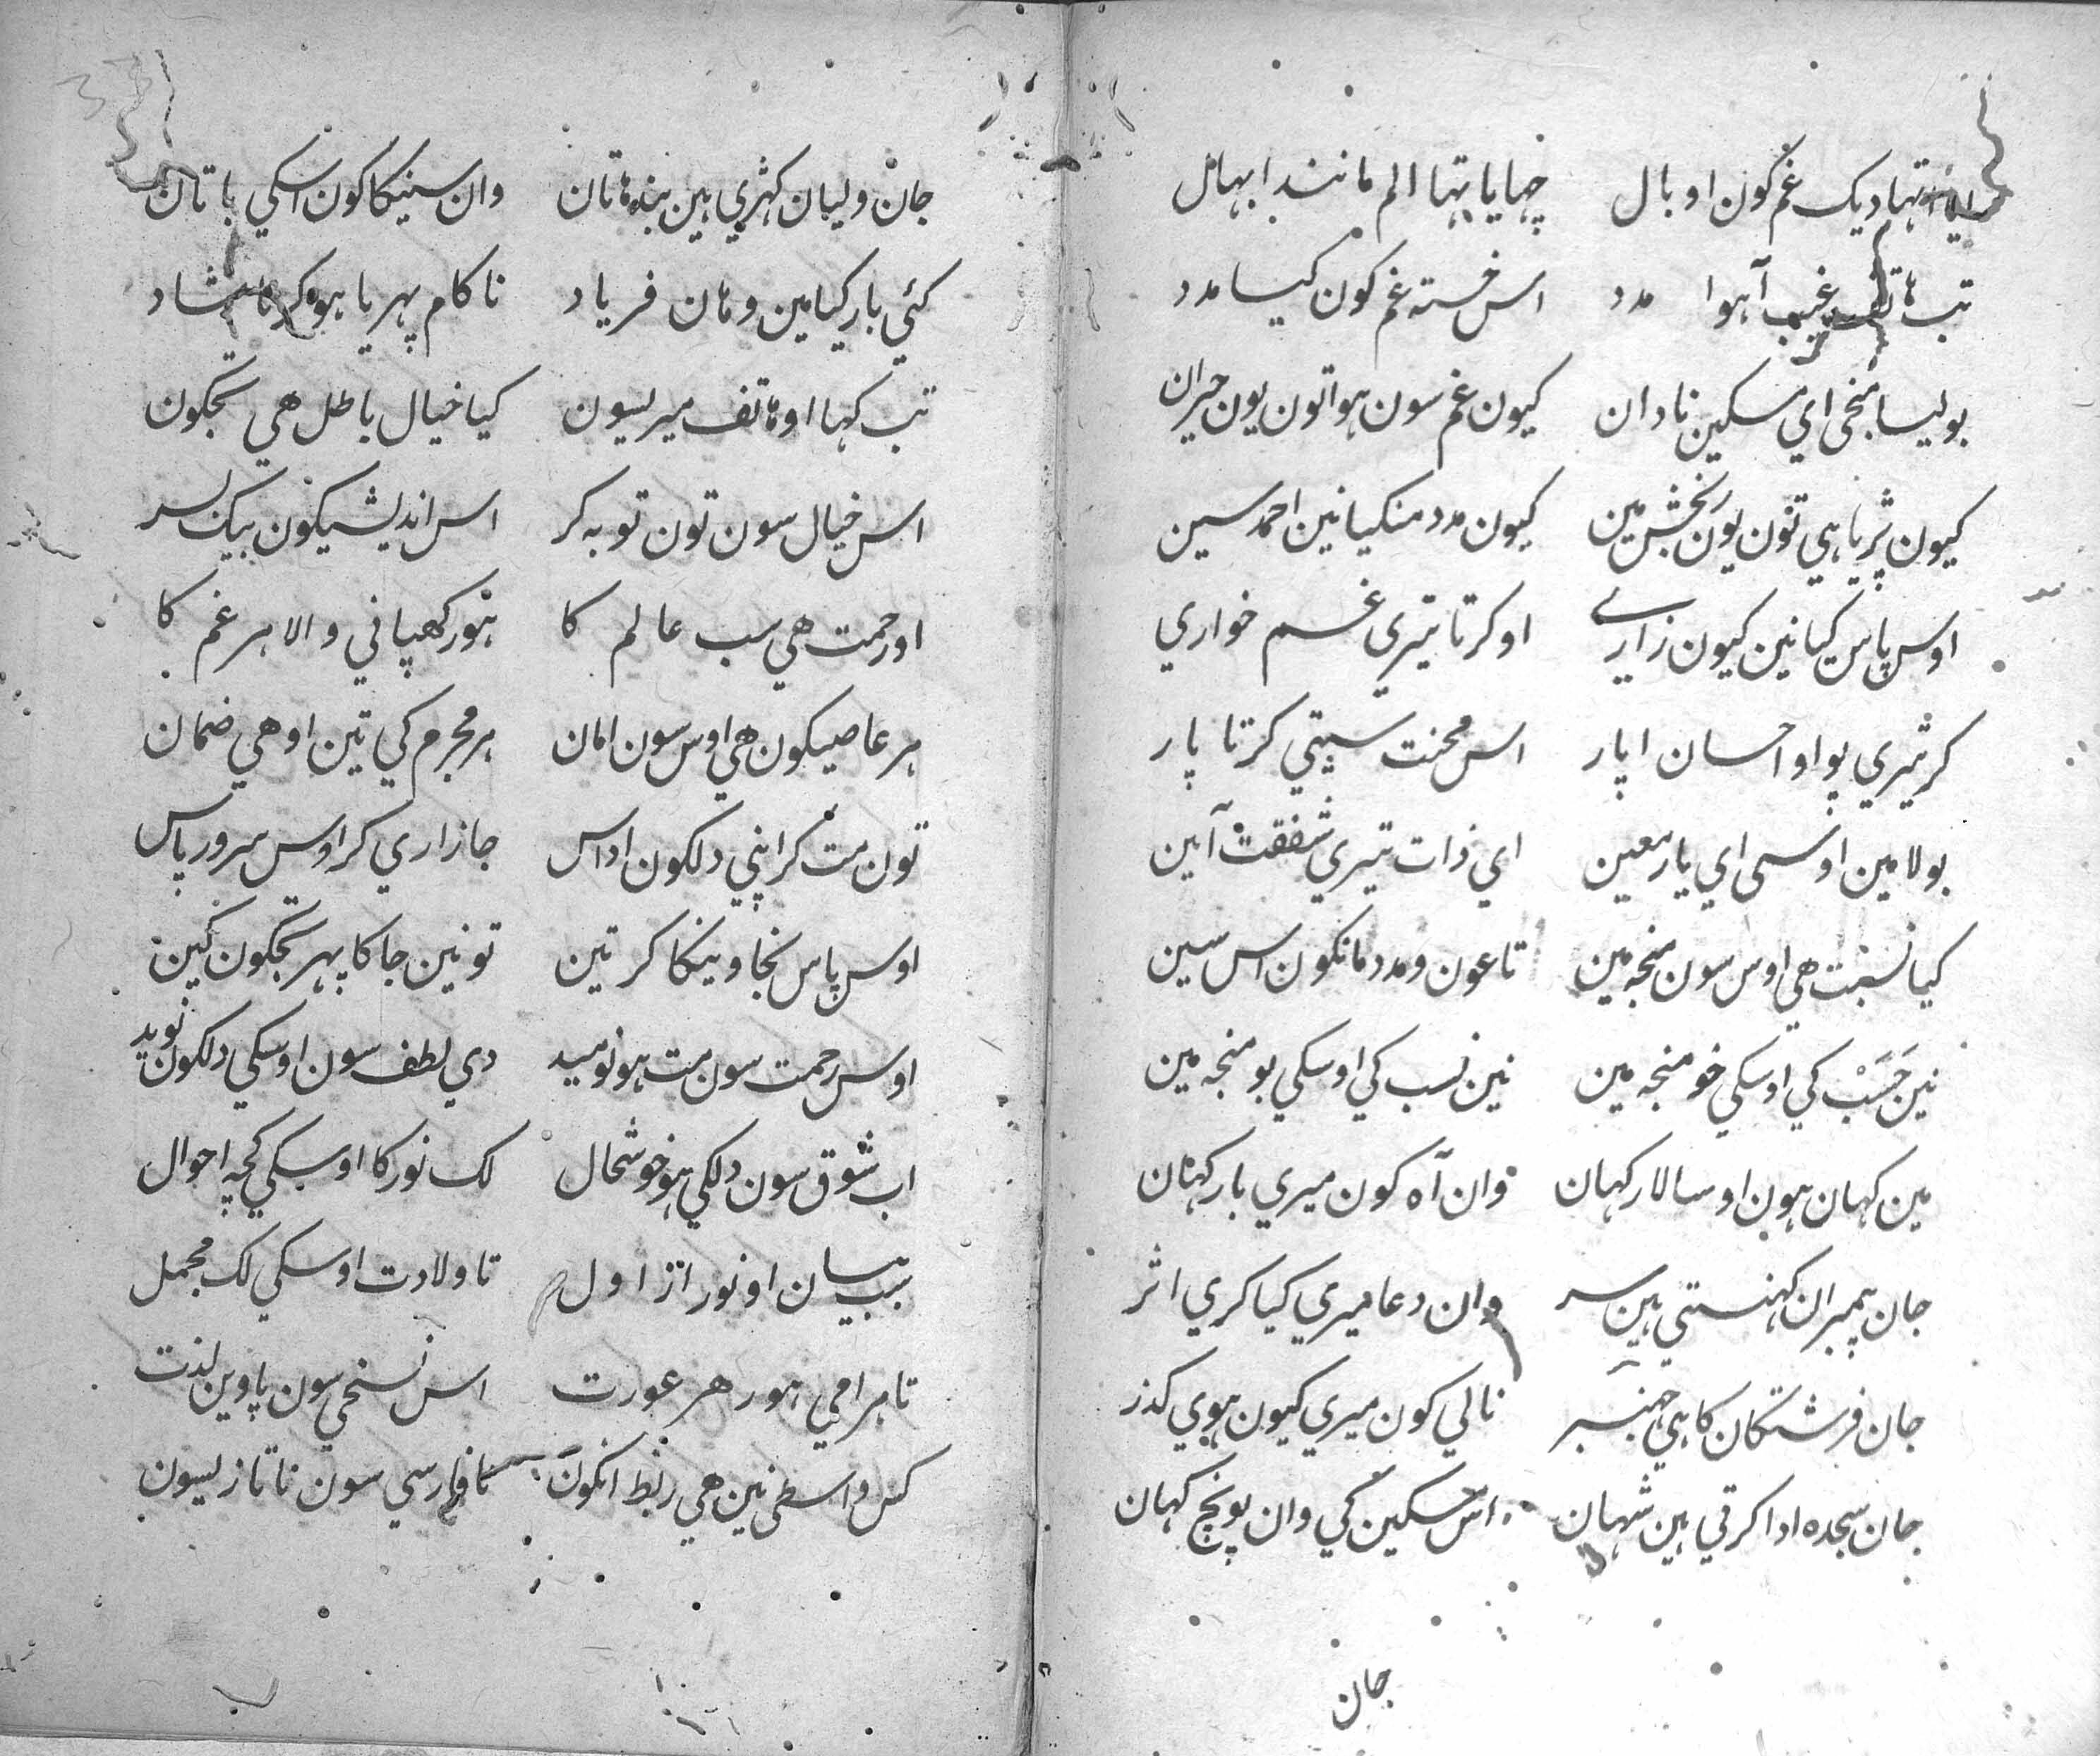 تها دیک غم کون او بال چهایا تها الم مانند ابهال
تب هاتف غیب آ هوا مدد اس خسته غم کون کیسا مدد
بولیا منجی ای مسکین نادان کیون غم سون هوا تون یون حیران
کیون پڑیا هی تون یون رنجش مین کیون مدد منکیا نین احمد سین
اوس پاس کیا نین کیون زاری او کرتا تیری غم خواری
کر تیری پو او احسان اپار اس محنت سیتی کرتا پار
بولا مین اوسی ای یار معین ای ذات تیری شفقت آیین
کیا نسبت هی اوس سون منجه مین تا عون و مدد مانکون اس سین
نین حَسَبْ کی اوسکی خو منجه مین نین نسب کی اوسکی بو منجه مین
مین کهان هون او سالار کهان وان آه کون میری بار کهان
جان پیمبران کهنستی هین سر وان دعا میری کیا کری اثر
جان فرشتکان کا هی جنبر نالی کون میری کیون هوی کذر
جان سجده ادا کرتی هین شهان اس مسکین کی وان پونچ کهان
جان
جان ولیان کهڑی هین بنده هاتان وان سنیکا کون اسکی باتان
کئی بار کیا مین وهان فریاد ناکام پهریا هوکر ناشاد
تب کها او هاتف میریسون کیا خیال باطل هی تجکون
اس خیال سون تون توبه کر اس اندیشیکون بیک بسر
او رحمت هی سب عالم کا هور کهپانی والا هر غم کا
هر عاصیکون هی اوس سون امان هر مجرم کی تین او هی ضمان
تون مت کر اپنی دلکون اداس جا زاری کر اوس سرور پاس
اوس پاس نجاوینکا کر تین تو نین جاکا پهر تجکون کین
اوس رحمت سون مت هو نومید دی لطف سون اوسکی دلکون نوید
اب شوق سون دلکی هو خوشحال لک نور کا اوسکی کچه احوال
بیان او نور از اول تا ولادت اوسکی لک مجمل
تا هر امی هور هر عورت اس نسخی سون پاوین لذت
کس واسطی نین هی ربط انکون نا فارسی سون نا تازیسون